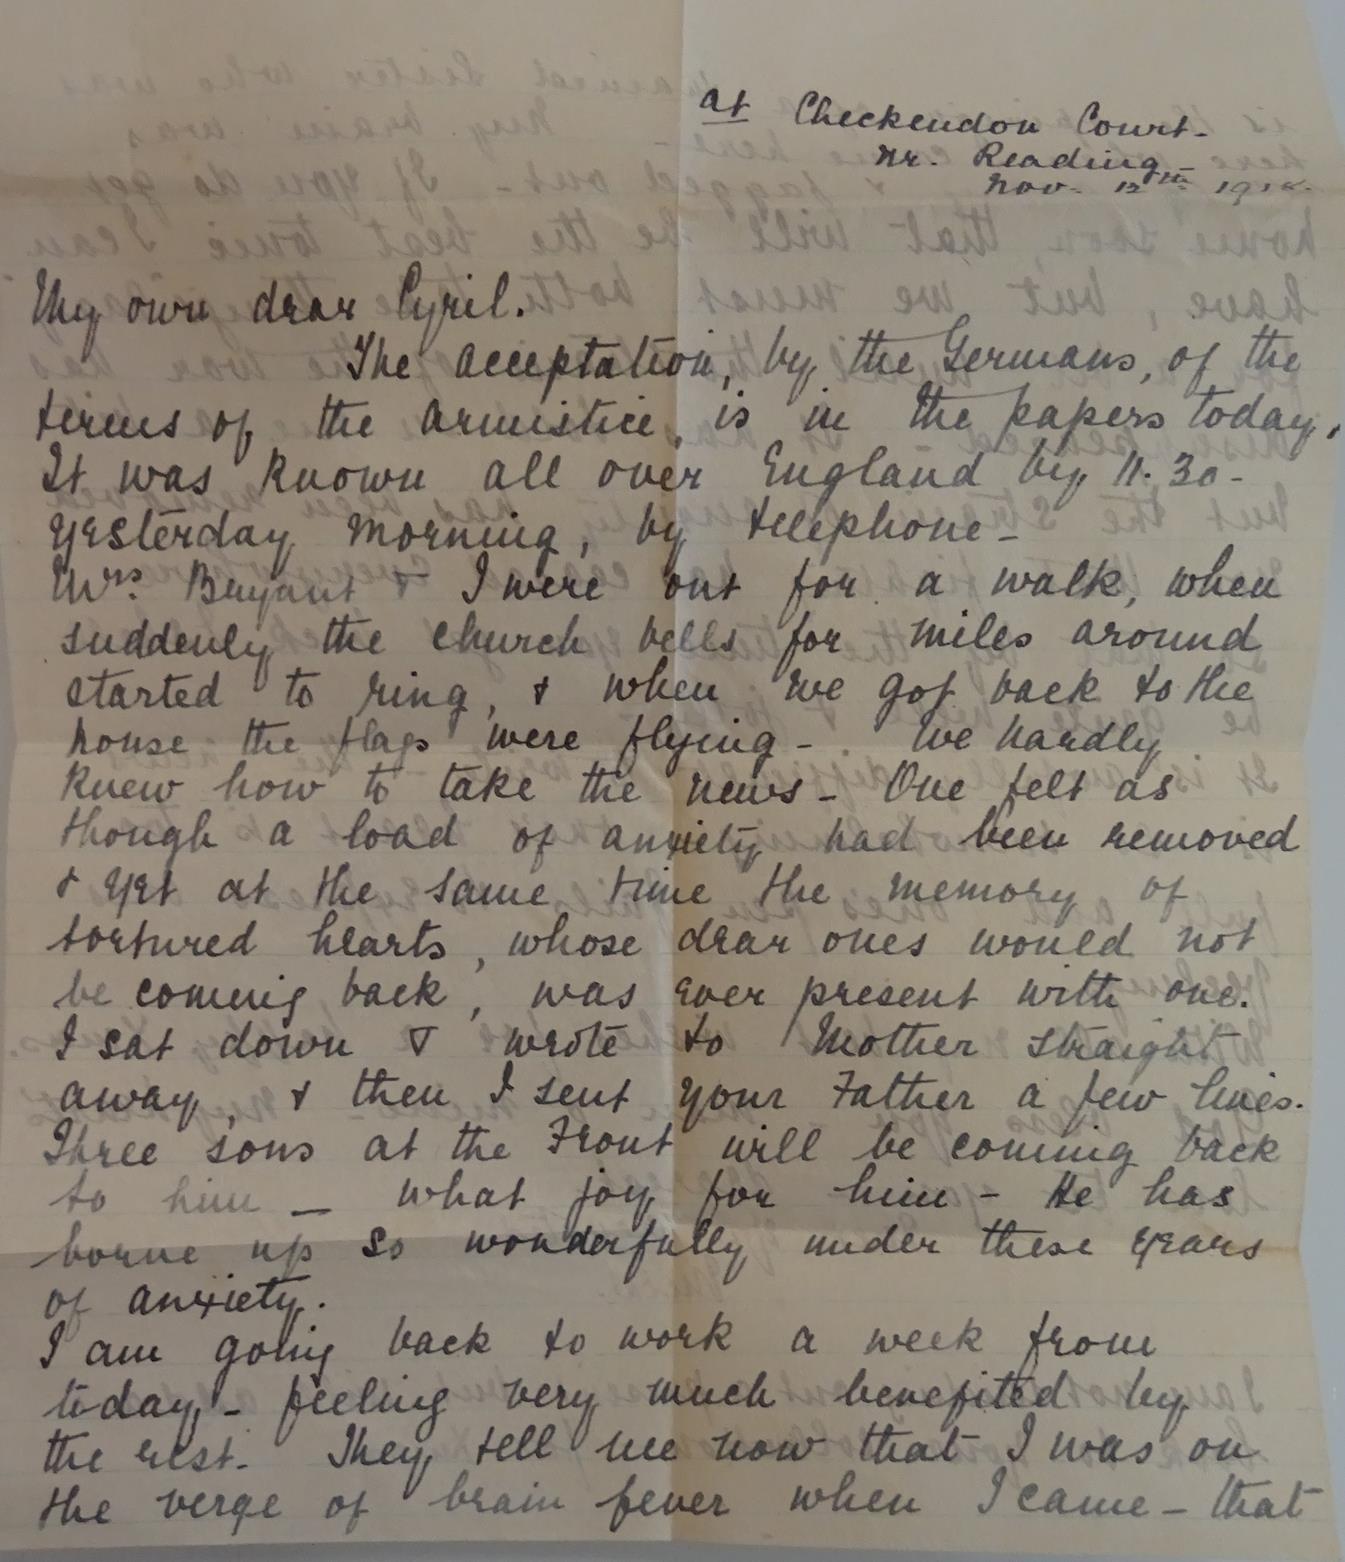 at Checkendon Court.
Nr. Reading -
Nov. 12th 1918.
My own dear Cyril.
The acceptation, by the Germans, of the
terms of the armistice, is in the papers today.
It was known all over England by 11.30 -
yesterday morning, by telephone -
Mrs. Bryant & I were out for a walk, when
suddenly the church bells for miles around
started to ring, & when we got back to the
house the flags were flying - We hardly
knew how to take the news - One felt as
though a load of anxiety had been removed
& yet at the same time the memory of
tortured hearts, whose dear ones would not
be coming back, was ever present with one.
I sat down & wrote to Mother straight
away, & then I sent your Father a few lines.
Three sons at the Front will be coming back
to him - what joy for him - He has
borne up so wonderfully under these years
of anxiety.
I am going back to work a week from
today - feeling very much benefited by
the rest. They tell me now that I was on
the verge of brain fever when I came - that